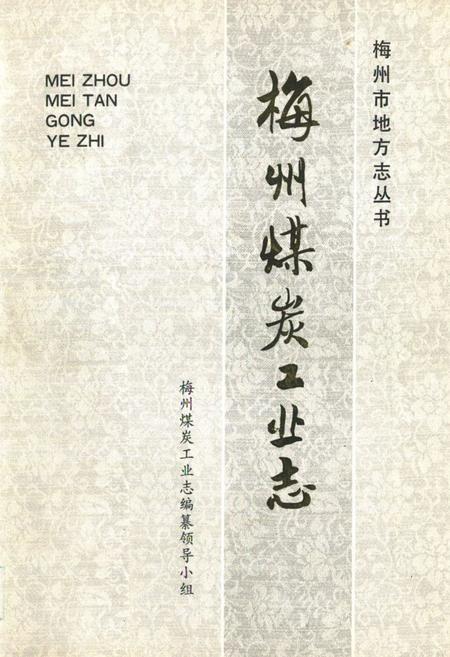 梅州市地方志丛书
梅州煤炭工业志
MEI ZHOU
MEI TAN
GONG
YE ZHI
梅州煤炭工业志编纂领导小组